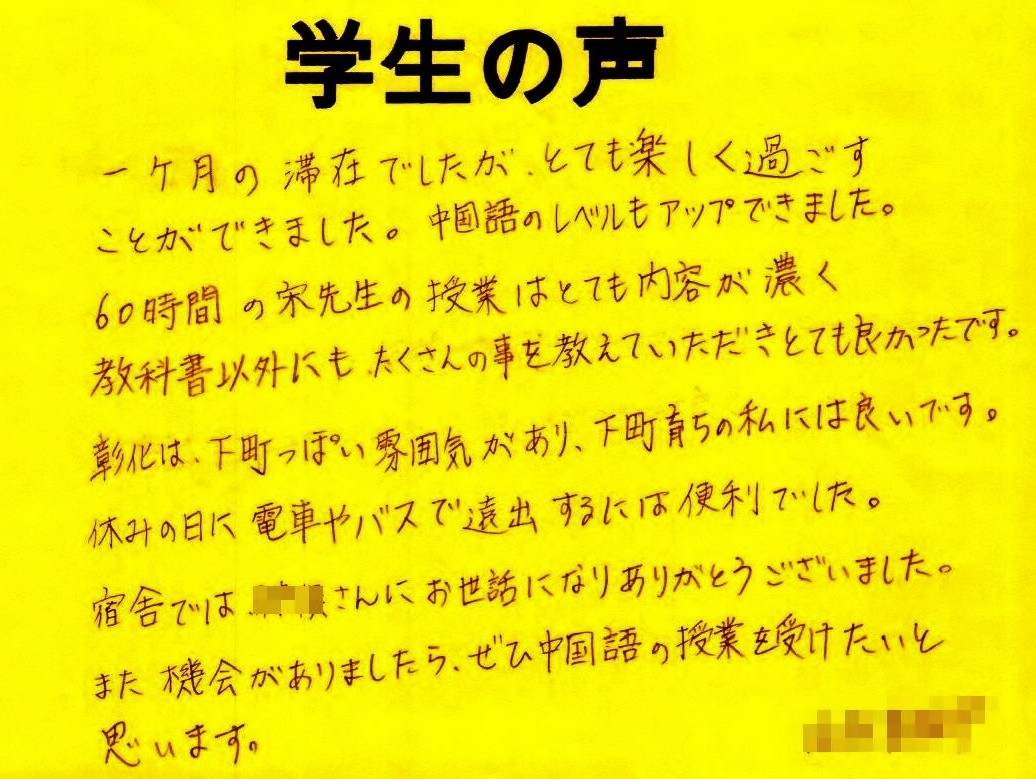 学生の声
一ケ月の滞在でしたが、とても楽しく過ごす
ことができました。中国語のレベルもアップできました。
60時間の宋先生の授業はとても内容が濃く
教科書以外にも、たくさんの事を教えていただきとても良かったです。
彰化は、下町っぽい雰囲気があり、下町育ちの私には良いです。
休みの日に電車やバスで遠出するには便利でした。
宿舎では さんにお世話になりありがとうございました。
また機会がありましたら、ぜひ中国語の授業を受けたいと
思います。